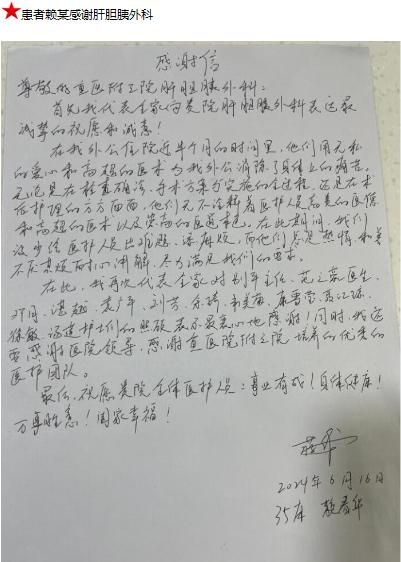 患者赖某感谢肝胆胰外科
感谢信
尊敬的重医附二院肝胆胰外科：
首先我代表全家向贵院肝胆胰外科表达最
诚挚的祝愿和诚意！
在我外公住院近半个月的时间里，他们用无私
的爱心和高超的医术为我外公消除了身体上的痛苦。
无论是在检查确诊、手术方案与实施的全过程，还是在术
后护理的方方面面，他们无不诠释着医护人员高贵的医德
和高超的医术以及崇高的医道本色。在此期间，我们
没少给医护人员出难题、添麻烦，而他们总是热情和善
不厌其烦而耐心讲解，尽力满足我们的要求。
在此，我再次代表全家对别平主任、范之亮医生、
邓周、湛越、袁广年、刘芳、
徐敏、等护士们的照顾表示最衷心地感谢！同时，我还
要感谢医院领导，感谢重医院附二院培养的优秀的
医护团队。
最后，祝愿贵院全体医护人员：事业有成！身体健康！
万事胜意！阖家幸福！
2024年6月16日
35床 赖春华